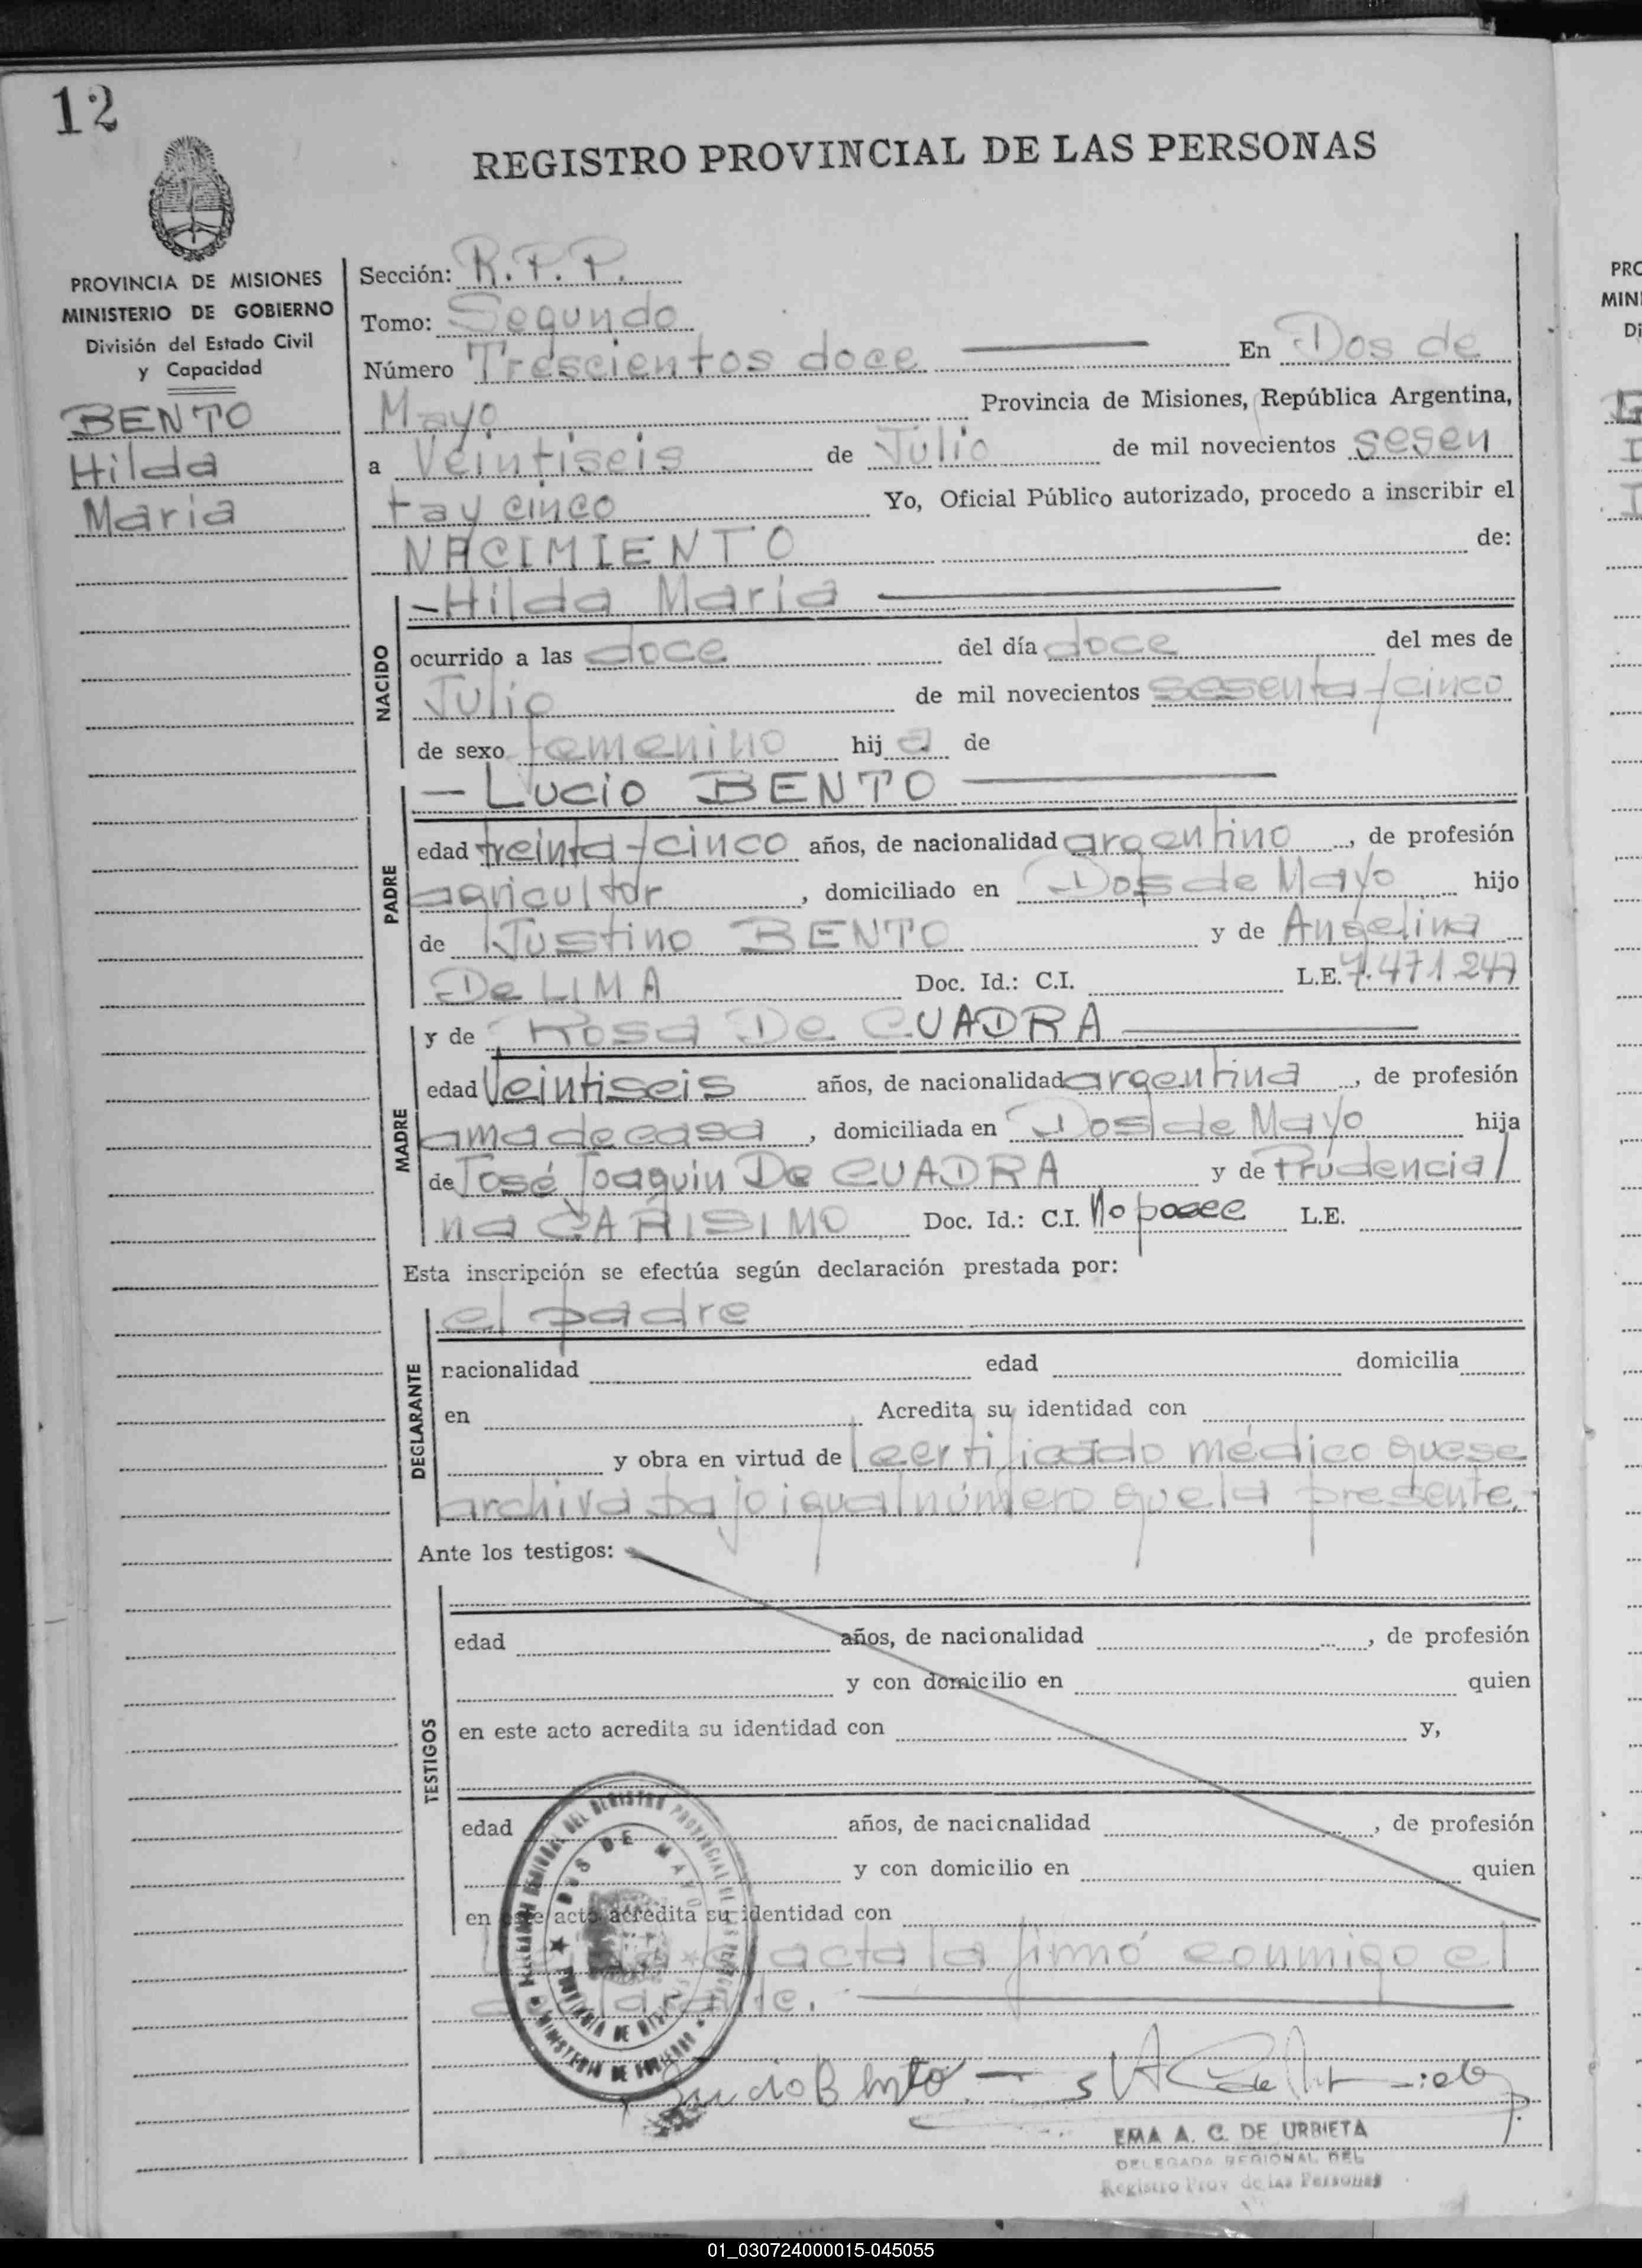 12
REGISTRO PROVINCIAL DE LAS PERSONAS
PROVINCIA DE MISIONES
MINISTERIO DE GOBIERNO
División del Estado Civil
y Capacidad
BENTO
Hilda
Maria
Sección: R.P.P.
Tomo: Segundo
Número Trescientos doce En Dos de
Mayo Provincia de Misiones, República Argentina,
a Veintiseis de Julio de mil novecientos sesen
ta y cinco Yo, Oficial Público autorizado, procedo a inscribir el
NACIMIENTO de:
NACIDO
-Hilda Maria
ocurrido a las doce del día doce del mes de
Julio de mil novecientos sesenta y cinco
de sexo femenino hija de
PADRE
- Lucio BENTO
edad treinta y cinco años, de nacionalidad argentino, de profesión
agricultor, domiciliado en Dos de Mayo hijo
de Justino BENTO y de Angelina
De LIMA Doc. Id.: C.I. L.E. 7.471.247
MADRE
y de Rosa De CUADRA
edad Veintiseis años, de nacionalidad argentina, de profesión
ama de casa, domiciliada en Dos de Mayo hija
de José Joaquin De CUADRA y de Prudencia/
na CARISIMO Doc. Id.: C.I. No posee L.E.
Esta inscripción se efectúa según declaración prestada por:
DECLARANTE
el padre
nacionalidad edad domicilia
en Acredita su identidad con
y obra en virtud de certificado médico que se
archiva bajo igual número que la presente.
Ante los testigos:
TESTIGOS
edad años, de nacionalidad , de profesión
y con domicilio en quien
en este acto acredita su identidad con y,
edad años, de nacionalidad , de profesión
y con domicilio en quien
en este acto acredita su identidad con
acta la firmó conmigo el
declarante.
DELEGACION REGIONAL DEL REGISTRO PROVINCIAL DE LAS PERSONAS
DOS DE MAYO
PROVINCIA DE MISIONES
MINISTERIO DE GOBIERNO
Lucio Bento
EMA A. C. DE URBIETA
DELEGADA REGIONAL DEL
Registro Prov de las Personas
PRO
MINI
Di
01_030724000015-045055